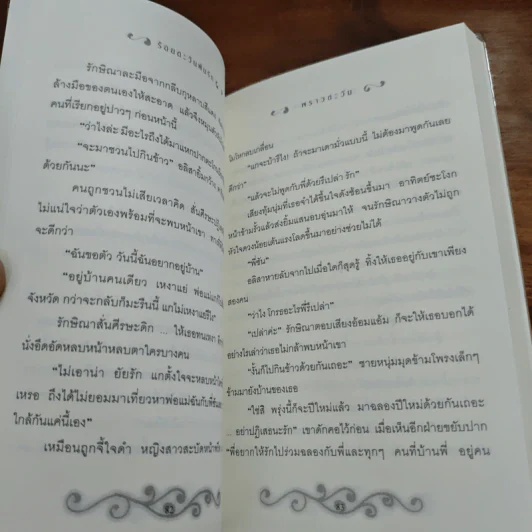 ร้อยตะวัน
รักษิณาละมือจากกลีบกุหลาบสีแดง
ล้างมือของตนเองให้สะอาด แล้วจึงหมุนตัว
คนที่เรียกอยู่ปาวๆ ก่อนหน้านี้
"ว่าไงล่ะ มีอะไรถึงได้มาแหกปาก
"จะมาชวนไปกินข้าว" อลิสายิ้มกว้าง
ด้วยกันนะ"
คนถูกชวนไม่เสียเวลาคิด สั่นศีรษะ
ไม่แน่ใจว่าตัวเองพร้อมที่จะพบหน้าเขา ทางที่
จะดีกว่า
"ฉันขอตัว วันนี้ฉันอยากอยู่บ้าน"
"อยู่บ้านคนเดียว เหงาแย่ พ่อแม่แกก็ไป
จังหวัด กว่าจะกลับก็มะรืนนี้ แกไม่เหงาแย่รึ"
รักษิณาสั่นศีรษะดิก ... ให้เธอทนเหงา
นั่งอึดอัดหลบหน้าหลบตาใครบางคน
"ไม่เอาน่า ยัยรัก แกตั้งใจจะหลบหน้า
เหรอ ถึงได้ไม่ยอมมาเที่ยวหาพ่อแม่ฉันที่
ใกล้กันแค่นี้เอง"
เหมือนถูกจี้ใจดำ หญิงสาวสะบัดหน้า
พราวตะวัน
ไม่ใส่กลบเกลื่อน
"แกจะบ้ารึไง! ถ้าจะมาเดามั่วแบบนี้ ไม่ต้องมาพูดกันเลย
ดีกว่า"
"แล้วจะไม่พูดกับพี่ด้วยรึเปล่า รัก"
เสียงทุ้มนุ่มที่เธอจำได้ขึ้นใจดังซ้อนขึ้นมา อาทิตย์ชะโงก
หน้าข้ามรั้วแล้วส่งยิ้มแสนอบอุ่นมาให้ จนรักษิณาวางตัวไม่ถูก
หัวใจดวงน้อยเต้นแรงโลดขึ้นมาอย่างช่วยไม่ได้
"พี่ซัน"
อลิสาหายลับจากไปเมื่อใดก็สุดรู้ ทิ้งให้เธออยู่กับเขาเพียง
สองคน
"ว่าไง โกรธอะไรพี่รึเปล่า"
"เปล่าค่ะ" รักษิณาตอบเสียงอ้อมแอ้ม ก็จะให้เธอบอกได้
อย่างไรเล่าว่าเธอไม่กล้าพบหน้าเขา
"งั้นก็ไปกินข้าวด้วยกันเถอะ" ชายหนุ่มมุดข้ามโพรงเล็กๆ
ข้ามมายังบ้านของเธอ
"ใช่สิ พรุ่งนี้ก็จะปีใหม่แล้ว มาฉลองปีใหม่ด้วยกันเถอะ
... อย่าปฏิเสธนะรัก" เขาดักคอไว้ก่อน เมื่อเห็นอีกฝ่ายขยับปาก
"พี่อยากให้รักไปร่วมฉลองกับพี่และทุกๆ คนที่บ้านพี่ อยู่คน